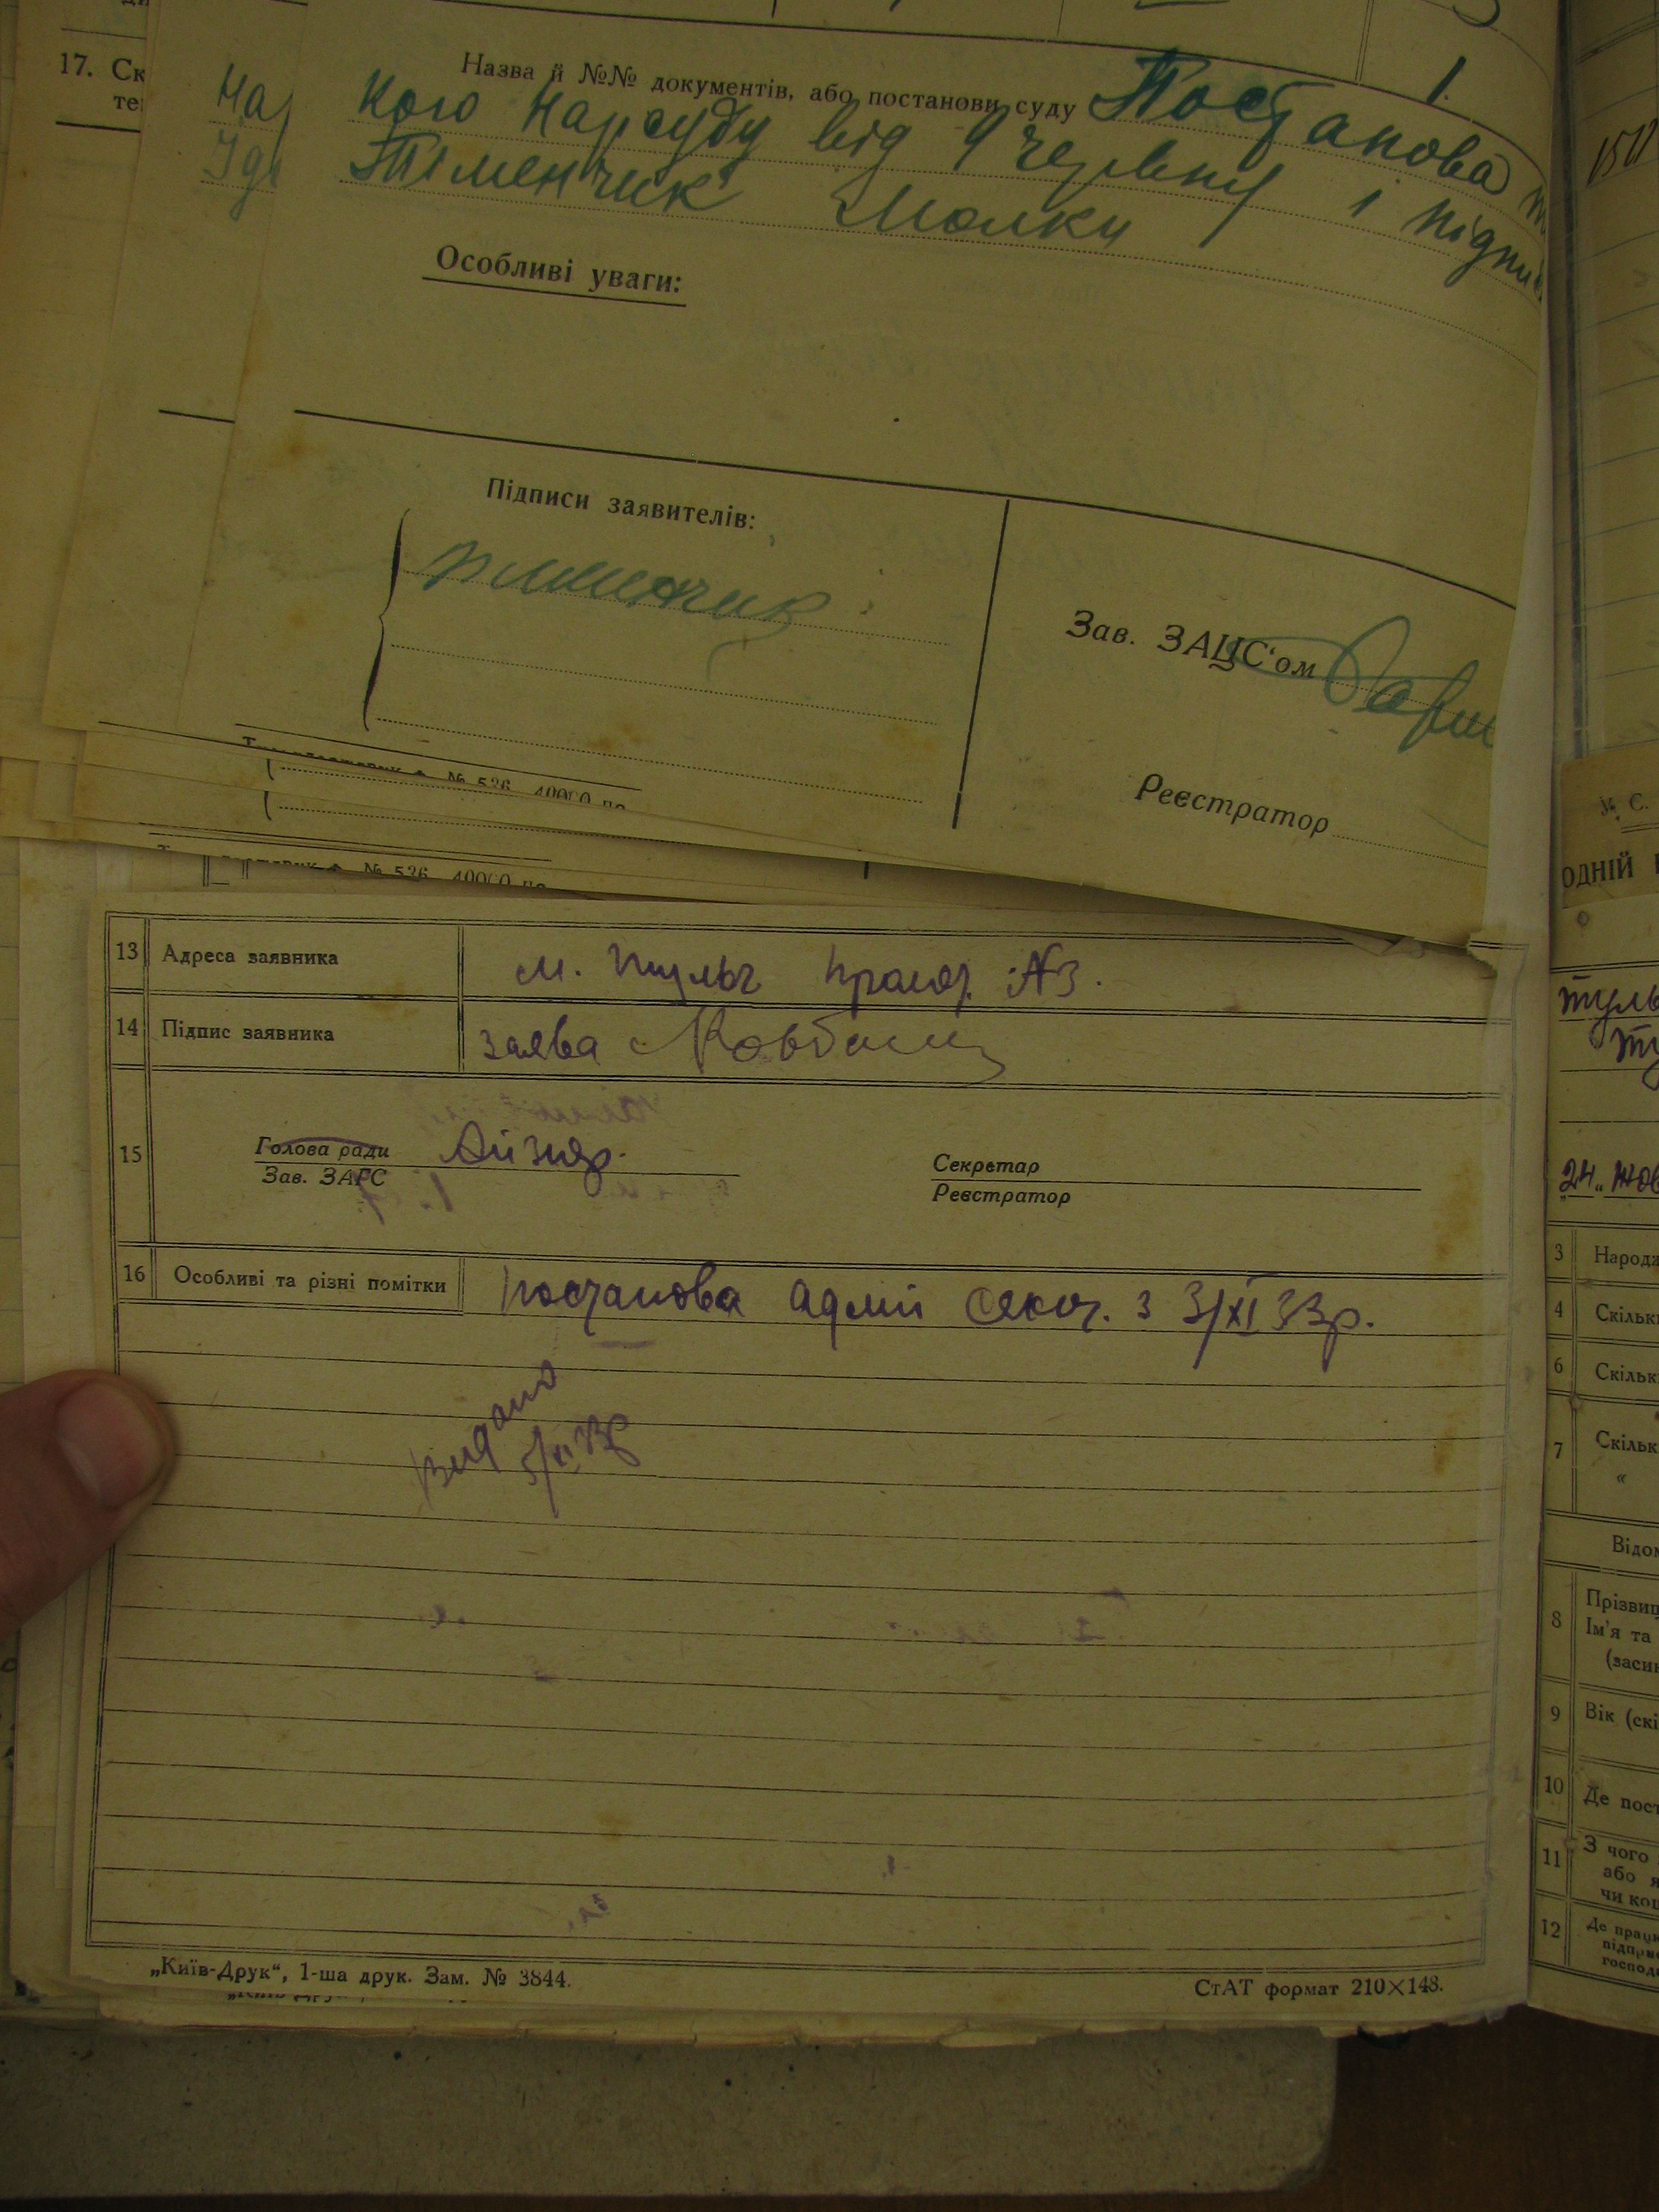 17. Ск
те
Назва й №№ документів, або постанови суду Постанова
кого Нарсуду від 9 червня і підпис
Тіменчик Малки
Особливі уваги:
Підписи заявителів:
Тіменчик
Зав. ЗАЦС‘ом
Реєстратор
№ 536 40000
№ 536 40000
13 Адреса заявника
14 Підпис заявника заява
15 Голова ради
Зав. ЗАГС
Секретар
Реєстратор
16 Особливі та різні помітки Постанова Адмін Секч. з 3/XI 33р.
Видано
5/XI 33р
„Київ-Друк“, 1-ша друк. Зам. № 3844.
СтАТ формат 210×148.
ОДНІЙ
24 Жов
3 Народж
4 Скільк
6 Скільк
7 Скільк
“
Відом
8 Прізвищ
Ім'я та
(засик
9 Вік (скі
10 Де пост
11 З чого
або я
чи кош
12 Де працю
підпри
господ